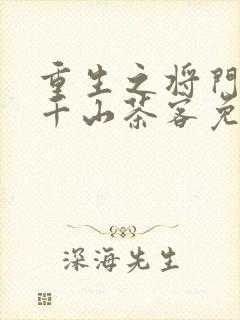 重生之将门
千山茶客免
深海先生